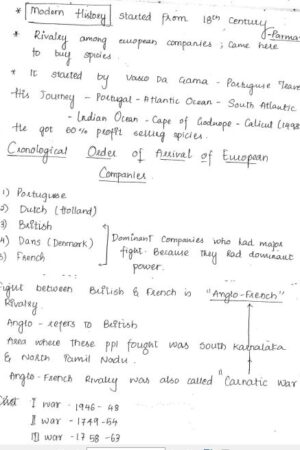 * Modern History started from 18th Century
* Rivalry among european companies ; came here
to buy spicies.
* It started by Vasco Da Gama - Portugise
His Journey - Portugal - Atlantic Ocean - South Atlantic
- Indian Ocean - Cape of Godhope - Calicut (1498
He got 60% profit selling spicies.
Cronological Order of Arrival of European
Companies.
1) Portuguese
2) Dutch (Holland)
3) British
4) Dans (Denmark)
5) French
Dominant Companies who had major
fight. Because they had dominant
power.
Fight between British & French is "Anglo-French"
Rivalry.
Anglo - refers to British
Area where these ppl fought was South Karnataka
& North Tamil Nadu.
Anglo-French Rivalry was also called "Carnatic War
I war - 1946-48
II war - 1749-54
III war - 1758-63